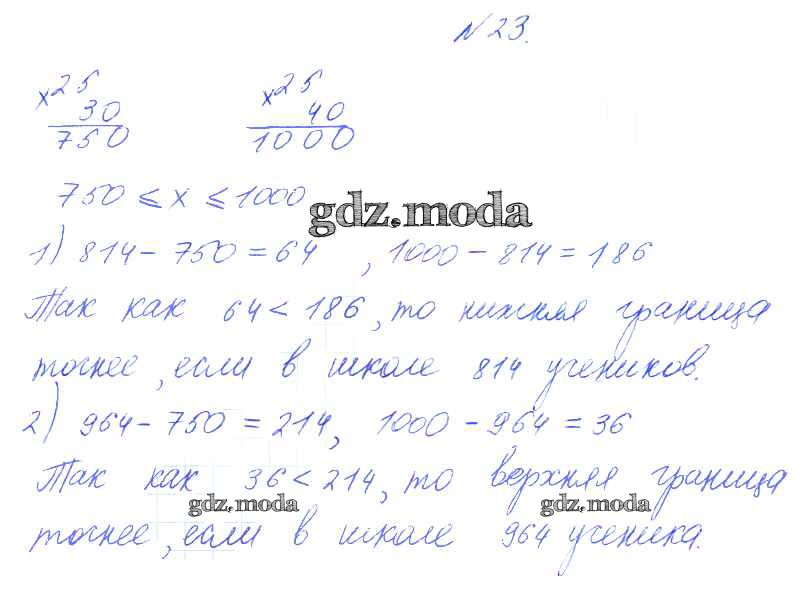 N 23.
x 25 x 25
30 40
750 1000
750 ⩽ x ⩽ 1000
gdz.moda
1) 814 - 750 = 64 , 1000 - 814 = 186
Так как 64 < 186, то нижняя граница
точнее, если в школе 814 учеников.
2) 964 - 750 = 214, 1000 - 964 = 36
Так как 36 < 214, то верхняя граница
gdz.moda gdz.moda
точнее, если в школе 964 ученика.